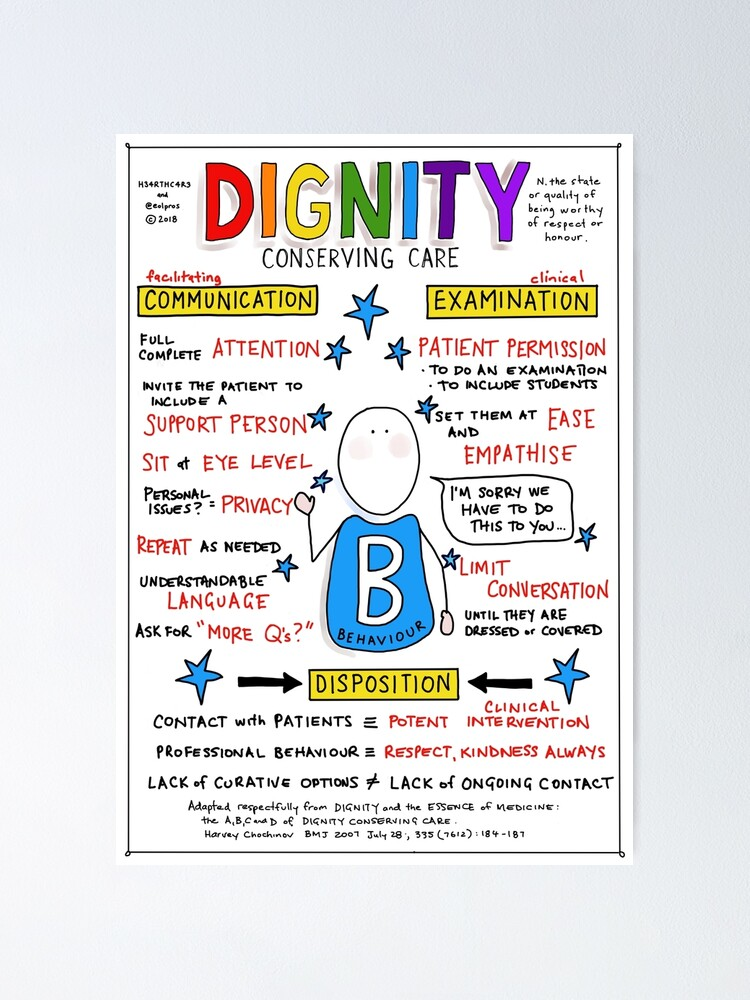 H34RTHC4R3
and
@eolpros
© 2018
DIGNITY
N. the state
or quality of
being worthy
of respect or
honour.
CONSERVING CARE
facilitating
COMMUNICATION
FULL
COMPLETE ATTENTION
INVITE THE PATIENT TO
INCLUDE A
SUPPORT PERSON
SIT at EYE LEVEL
PERSONAL
ISSUES? = PRIVACY
REPEAT AS NEEDED
UNDERSTANDABLE
LANGUAGE
ASK FOR "MORE Q's?"
clinical
EXAMINATION
PATIENT PERMISSION
· TO DO AN EXAMINATION
· TO INCLUDE STUDENTS
SET THEM AT EASE
AND
EMPATHISE
I'M SORRY WE
HAVE TO DO
THIS TO YOU...
LIMIT
CONVERSATION
UNTIL THEY ARE
DRESSED or COVERED
B
BEHAVIOUR
DISPOSITION
CONTACT with PATIENTS ≡ POTENT CLINICAL INTERVENTION
PROFESSIONAL BEHAVIOUR ≡ RESPECT, KINDNESS ALWAYS
LACK of CURATIVE OPTIONS ≠ LACK of ONGOING CONTACT
Adapted respectfully from DIGNITY and the ESSENCE of MEDICINE:
the A,B,C and D of DIGNITY CONSERVING CARE.
Harvey Chochinov BMJ 2007 July 28:, 335 (7612): 184-187